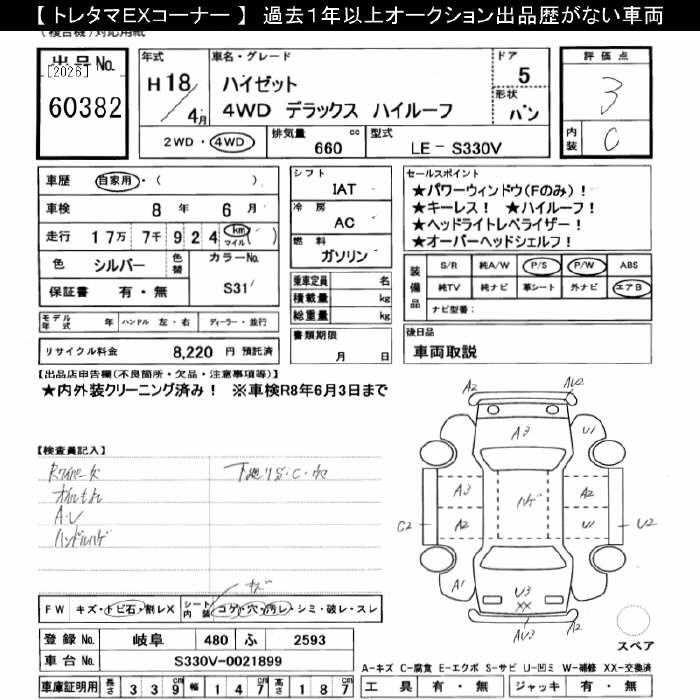 【 トレタマEXコーナー 】 過去1年以上オークション出品歴がない車両
(複合機)対応用紙
出品No.
[2026]
60382
年式
H 18/4月
車名・グレード
ハイゼット
4WD デラックス ハイルーフ
ドア
5
形状
バン
2WD・4WD
排気量 660 cc
型式 LE-S330V
評価点
3
内装 C
車歴 自家用・( )
車検 8年 6月
走行 17万 7千 9 2 4 km マイル ( )
色 シルバー
色替
カラーNo. S31
保証書 有・無
シフト
IAT
冷房
AC
燃料
ガソリン
乗車定員 名
積載量 kg
総重量 kg
書類期限
月 日
セールスポイント
★パワーウィンドウ(Fのみ)!
★キーレス! ★ハイルーフ!
★ヘッドライトレベライザー!
★オーバーヘッドシェルフ!
装備品
S/R 純A/W P/S P/W ABS
純TV 純ナビ 革シート 外ナビ エアB
ナビ型番:
モデル年式 年 ハンドル 左・右 ディーラー・並行
リサイクル料金 8,220 円 預託済
後日品
車両取説
【出品店申告欄(不良箇所・欠品・注意事項等)】
★内外装クリーニング済み! ※車検R8年6月3日まで
【検査員記入】
オイルもれ
A・U
ハンドルハゲ
下廻りS・C・
A2
AU2
A3
U1
A3
A2
ハゲ
C2
A2
U1
U2
A1
U3
XX
AU3
FW キズ・トビ石・割レX
シート内装 コゲ・穴・汚レ・シミ・破レ・スレ
登録No. 岐阜 480 ふ 2593
車台No. S330V-0021899
車庫証明用 長さ 339 幅 147 高さ 187
スペア
A-キズ C-腐食 E-エクボ S-サビ U-凹ミ W-補修 XX-交換済
工具 有・無 ジャッキ 有・無